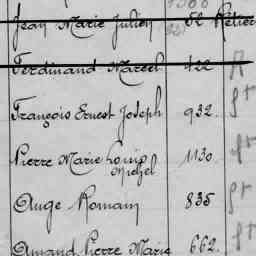 Jean Marie Julien 52
Ferdinand Marcel 422
François Ernest Joseph 932.
Pierre Marie Louis 1130.
Michel
Ange Romain 835
Amand Pierre Marie 662.